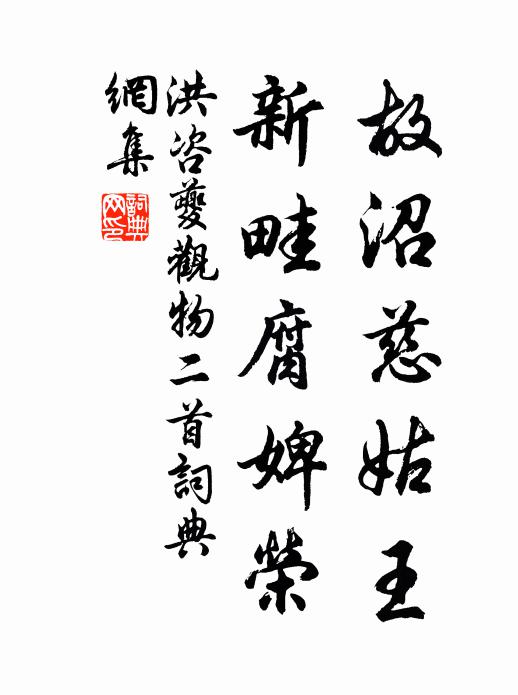 故沼慈姑王
新畦腐婢榮
洪咨夔觀物二首詞典
網集
詞典
网印